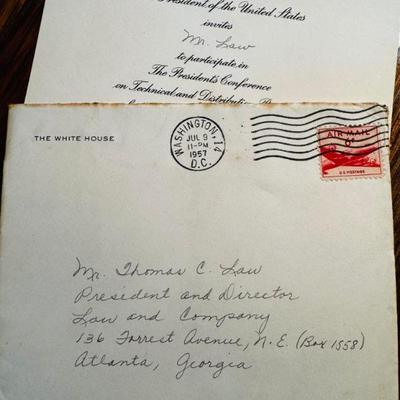 President of the United States
invites
Mr. Law
to participate in
The President's Conference
on Technical and Distribution
THE WHITE HOUSE
WASHINGTON, 14
D.C.
JUL 9
11-PM
1957
AIR MAIL
6¢
U.S. POSTAGE
Mr. Thomas C. Law
President and Director
Law and Company
136 Forrest Avenue, N.E. (Box 1558)
Atlanta, Georgia